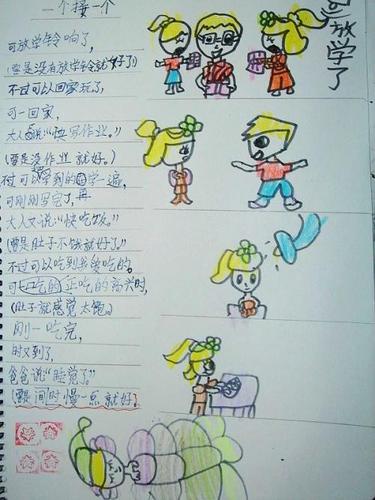 一个接一个
可放学铃响了,
(要是没有放学铃就好了!)
不过可以回家玩了,
可一回家,
大人说:“快写作业。”
(要是没作业就好。)
不过可以学到的学一遍,
可刚刚写完了,再
大人又说:“快吃饭。”
(要是肚子不饿就好了!)
不过可以吃到我爱吃的,
可吃的正吃的高兴时,
(肚子就感觉太饱。)
刚一吃完,
时又到了,
爸爸说“睡觉了”
(要是时间慢一点就好了
放学了